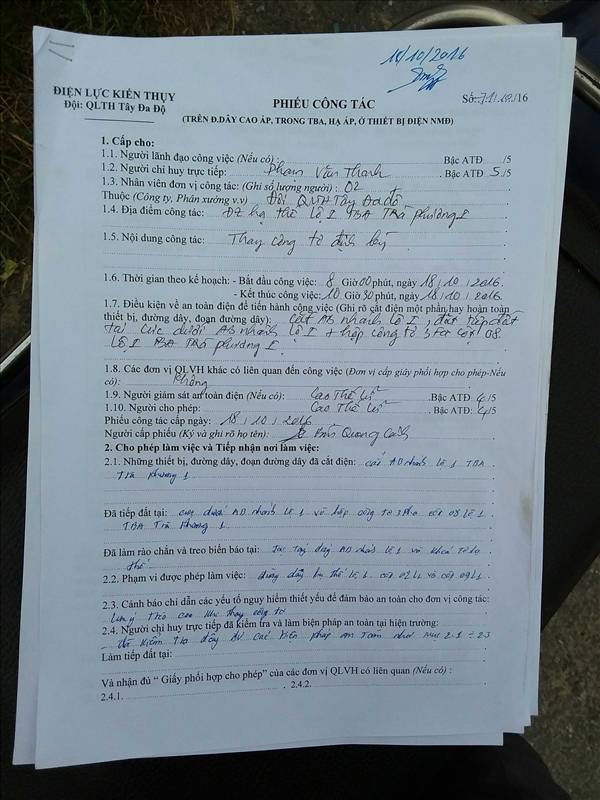 18/10/2016
ĐIỆN LỰC KIẾN THỤY
Đội: QLTH Tây Đa Độ
PHIẾU CÔNG TÁC
Số: 71/10/16
(TRÊN Đ.DÂY CAO ÁP, TRONG TBA, HẠ ÁP, Ở THIẾT BỊ ĐIỆN NMĐ)
1. Cấp cho:
1.1. Người lãnh đạo công việc (Nếu có): Bậc ATĐ /5
1.2. Người chỉ huy trực tiếp: Phạm Văn Thanh. Bậc ATĐ 5/5
1.3. Nhân viên đơn vị công tác: (Ghi số lượng người): 02
Thuộc (Công ty, Phân xưởng v.v) Đội QLTH Tây Đa độ
1.4. Địa điểm công tác: ĐZ hạ thế lộ I TBA Trà phương I
1.5. Nội dung công tác: Thay công tơ định kỳ
1.6. Thời gian theo kế hoạch: - Bắt đầu công việc: 8 Giờ 00 phút, ngày 18/10/2016
- Kết thúc công việc: 10 Giờ 30 phút, ngày 18/10/2016
1.7. Điều kiện về an toàn điện để tiến hành công việc (Ghi rõ cắt điện một phần hay hoàn toàn
thiết bị, đường dây, đoạn đường dây): Cắt AB nhánh lộ I, đặt tiếp đất
tại cực dưới AB nhánh lộ I + hộp công tơ 3 fa cột 08
lộ I TBA Trà phương I
1.8. Các đơn vị QLVH khác có liên quan đến công việc (Đơn vị cấp giấy phối hợp cho phép-Nếu
có): Không
1.9. Người giám sát an toàn điện (Nếu có): Cao Thế Bậc ATĐ: 4/5
1.10. Người cho phép: Cao Thế Bậc ATĐ: 4/5
Phiếu công tác cấp ngày: 18/10/2016
Người cấp phiếu (Ký và ghi rõ họ tên): Quang
2. Cho phép làm việc và Tiếp nhận nơi làm việc:
2.1. Những thiết bị, đường dây, đoạn đường dây đã cắt điện: cắt AB nhánh lộ 1 TBA
Trà phương 1
Đã tiếp đất tại: cực dưới AB nhánh lộ 1 và hộp công tơ 3 pha cột 08 lộ 1
TBA Trà phương 1
Đã làm rào chắn và treo biển báo tại: tại tay AB nhánh lộ 1 và khoá
2.2. Phạm vi được phép làm việc: đường dây hạ thế lộ 1
2.3. Cảnh báo chỉ dẫn các yếu tố nguy hiểm thiết yếu để đảm bảo an toàn cho đơn vị công tác:
Lưu ý Trèo cao khi thay công tơ
2.4. Người chỉ huy trực tiếp đã kiểm tra và làm biện pháp an toàn tại hiện trường:
đã kiểm tra đầy đủ các biện pháp an toàn như mục 2.1 ÷ 2.3
Làm tiếp đất tại:
Và nhận đủ “ Giấy phối hợp cho phép” của các đơn vị QLVH có liên quan (Nếu có) :
2.4.1. . 2.4.2.